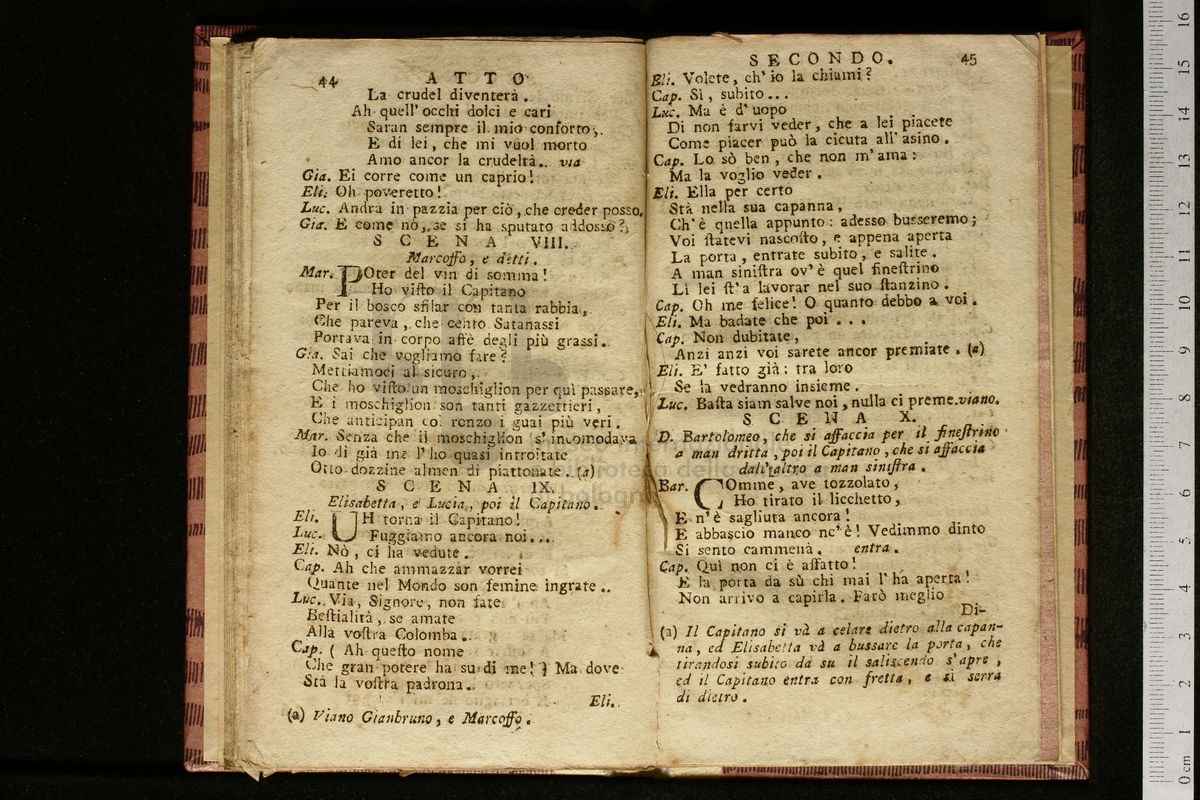 44 ATTO
La crudel diventerà.
Ah quell' occhi dolci e cari
Saran sempre il mio conforto,
E di lei, che mi vuol morto
Amo ancor la crudeltà. via
Gia. Ei corre come un caprio!
Eli. Oh poveretto!
Luc. Andrà in pazzia per ciò, che creder posso.
Gia. E come nò, se si ha sputato addosso?
SCENA VIII.
Marcoffo, e detti.
Mar. POter del vin di somma!
Ho visto il Capitano
Per il bosco sfilar con tanta rabbia,
Che pareva, che cento Satanassi
Portava in corpo affè degli più grassi.
Gia. Sai che vogliamo fare?
Mettiamoci al sicuro,
Che ho visto un moschiglion per quì passare,
E i moschiglion son tanti gazzettieri,
Che anticipan coi ronzo i guai più veri.
Mar. Senza che il moschiglion s' incomodava
Io di già me l' ho quasi introitate
Otto dozzine almen di piattonate. (a)
SCENA IX.
Elisabetta, e Lucia, poi il Capitano.
Eli. UH torna il Capitano!
Luc. Fuggiamo ancora noi...
Eli. Nò, ci ha vedute.
Cap. Ah che ammazzar vorrei
Quante nel Mondo son femine ingrate.
Luc. Via, Signore, non fate
Bestialità, se amate
Alla vostra Colomba.
Cap. ( Ah questo nome
Che gran potere ha su di me! ) Ma dove
Stà la vostra padrona.
Eli.
(a) Viano Gianbruno, e Marcoffo.
SECONDO. 45
Eli. Volete, ch' io la chiami?
Cap. Sì, subito...
Luc. Ma è d' uopo
Di non farvi veder, che a lei piacete
Come piacer può la cicuta all' asino.
Cap. Lo sò ben, che non m' ama:
Ma la voglio veder.
Eli. Ella per certo
Stà nella sua capanna,
Ch' è quella appunto: adesso busseremo;
Voi statevi nascosto, e appena aperta
La porta, entrate subito, e salite.
A man sinistra ov' è quel finestrino
Lì lei st' a lavorar nel suo stanzino.
Cap. Oh me felice! O quanto debbo a voi.
Eli. Ma badate che poi...
Cap. Non dubitate,
Anzi anzi voi sarete ancor premiate. (a)
Eli. E' fatto già: tra loro
Se la vedranno insieme.
Luc. Basta siam salve noi, nulla ci preme. viano.
SCENA X.
D. Bartolomeo, che si affaccia per il finestrino
a man dritta, poi il Capitano, che si affaccia
dall' altro a man sinistra.
Bar. COmme, ave tozzolato,
Ho tirato il licchetto,
E n' è sagliuta ancora!
E abbascio manco nc' è! Vedimmo dinto
Si sento cammenà. entra.
Cap. Quì non ci è affatto!
E la porta da sù chi mai l' ha aperta!
Non arrivo a capirla. Farò meglio
Di-
(a) Il Capitano si và a celare dietro alla capan-
na, ed Elisabetta và a bussare la porta, che
tirandosi subito da su il saliscendo s' apre,
ed il Capitano entra con fretta, e si serra
di dietro.
0 cm 1 2 3 4 5 6 7 8 9 10 11 12 13 14 15 16